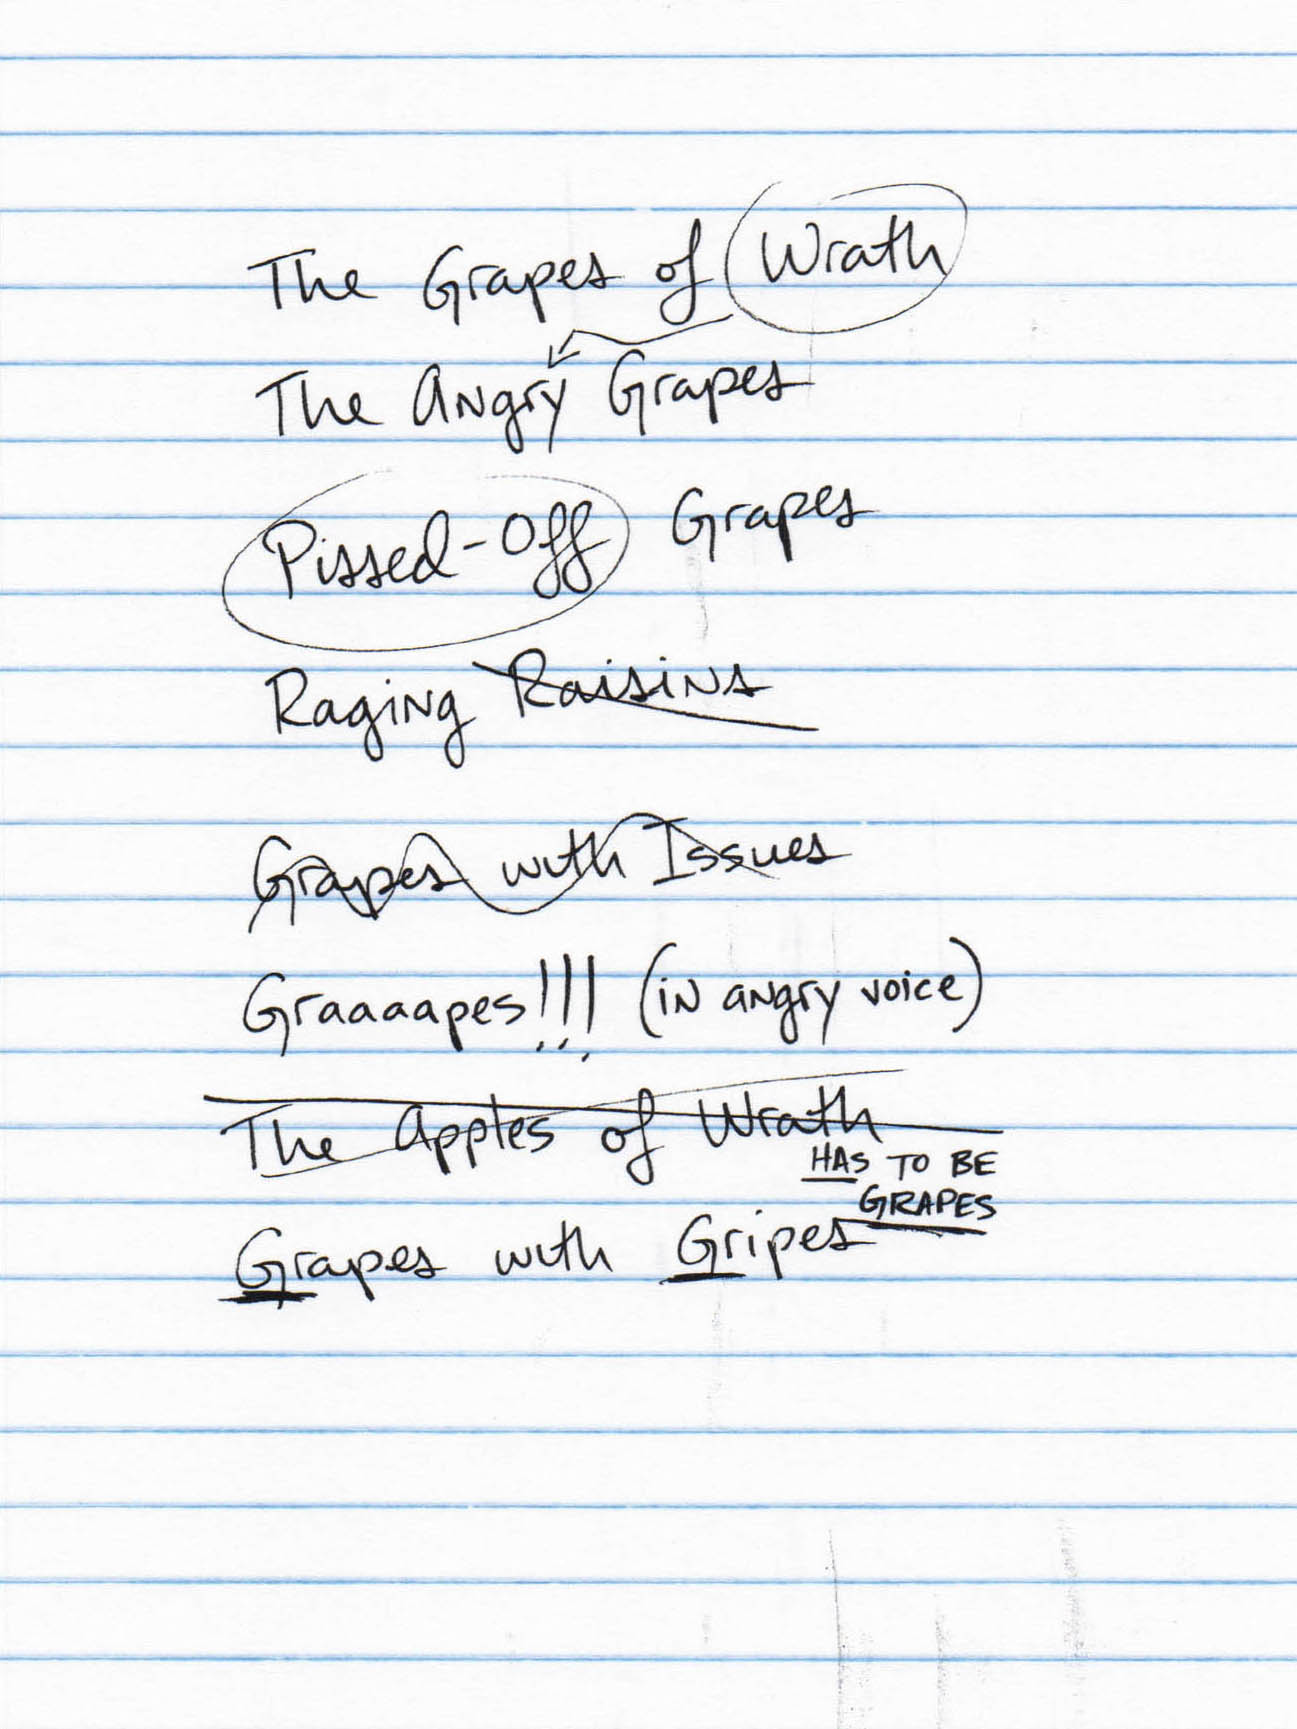 The Grapes of Wrath
The Angry Grapes
Pissed-Off Grapes
Raging Raisins
Grapes with Issues
Graaaapes!!! (in angry voice)
The Apples of Wrath
HAS TO BE
GRAPES
Grapes with Gripes